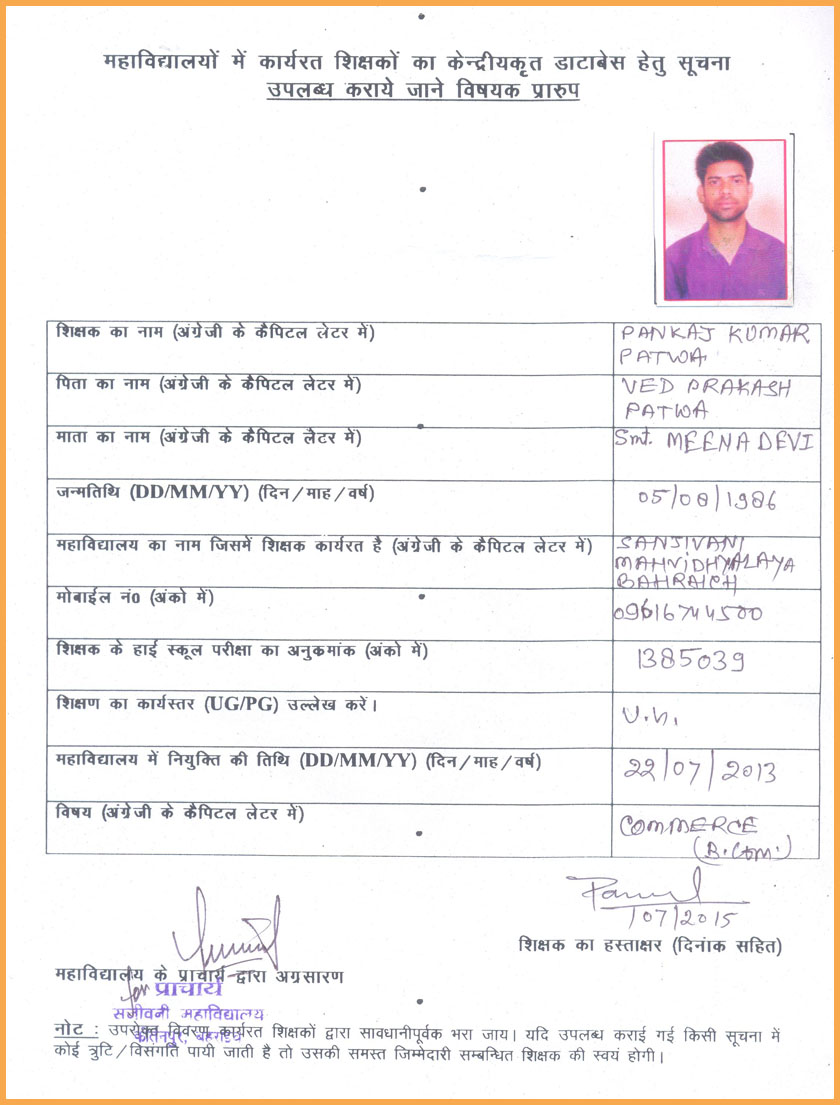 महाविद्यालयों में कार्यरत शिक्षकों का केन्द्रीयकृत डाटाबेस हेतु सूचना
उपलब्ध कराये जाने विषयक प्रारुप
शिक्षक का नाम (अंग्रेजी के कैपिटल लेटर में)
PANKAJ KUMAR
PATWA
पिता का नाम (अंग्रेजी के कैपिटल लेटर में)
VED PRAKASH
PATWA
माता का नाम (अंग्रेजी के कैपिटल लैटर में)
Smt. MEENA DEVI
जन्मतिथि (DD/MM/YY) (दिन/माह/वर्ष)
05/08/1986
महाविद्यालय का नाम जिसमें शिक्षक कार्यरत है (अंग्रेजी के कैपिटल लेटर में)
SANJIVANI
MAHVIDHYALAYA
BAHRAICH
मोबाईल नं0 (अंको में)
09616744500
शिक्षक के हाई स्कूल परीक्षा का अनुकमांक (अंको में)
1385039
शिक्षण का कार्यस्तर (UG/PG) उल्लेख करें।
महाविद्यालय में नियुक्ति की तिथि (DD/MM/YY) (दिन/माह/वर्ष)
22/07/2013
विषय (अंग्रेजी के कैपिटल लेटर में)
COMMERCE
(B.Com.)
/07/2015
शिक्षक का हस्ताक्षर (दिनांक सहित)
महाविद्यालय के प्राचार्य द्वारा अग्रसारण
for प्राचार्य
संजीवनी महाविद्यालय
नोट : उपरोक्त विवरण कार्यरत शिक्षकों द्वारा सावधानीपूर्वक भरा जाय। यदि उपलब्ध कराई गई किसी सूचना में
कोई त्रुटि/विसंगति पायी जाती है तो उसकी समस्त जिम्मेदारी सम्बन्धित शिक्षक की स्वयं होगी।